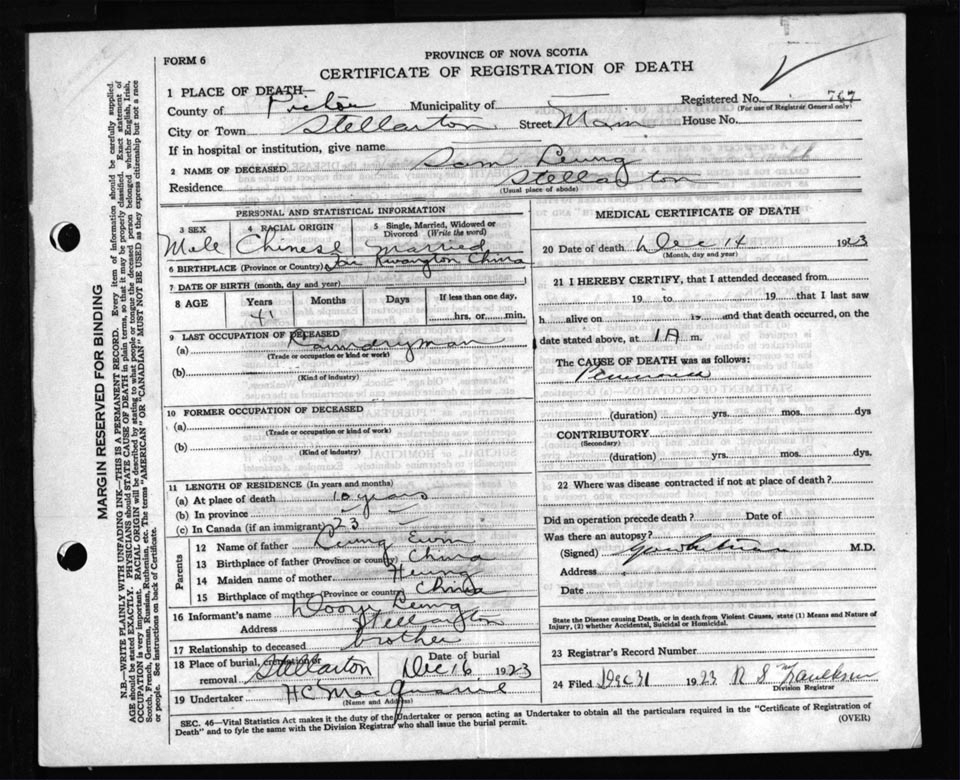 FORM 6
PROVINCE OF NOVA SCOTIA
CERTIFICATE OF REGISTRATION OF DEATH
1 PLACE OF DEATH—
Registered No. 767
(For use of Registrar General only)
County of Pictou Municipality of —
City or Town Stellarton Street Main House No.
If in hospital or institution, give name
2 NAME OF DECEASED Sam Leung
Residence Stellarton
(Usual place of abode)
PERSONAL AND STATISTICAL INFORMATION
3 SEX 4 RACIAL ORIGIN 5 Single, Married, Widowed or Divorced (Write the word)
Male Chinese Married
6 BIRTHPLACE (Province or Country) Kwangton China
7 DATE OF BIRTH (month, day and year)
8 AGE Years Months Days If less than one day,
41 hrs, or min.
9 LAST OCCUPATION OF DECEASED
(a) Laundryman
(Trade or occupation or kind or work)
(b)
(Kind of industry)
10 FORMER OCCUPATION OF DECEASED
(a)
(Trade or occupation or kind of work)
(b)
(Kind of industry)
11 LENGTH OF RESIDENCE (In years and months)
(a) At place of death 10 years
(b) In province — —
(c) In Canada (if an immigrant) 23 —
Parents
12 Name of father Leung
13 Birthplace of father (Province or country) China
14 Maiden name of mother Heung
15 Birthplace of mother (Province or Country) China
16 Informant's name Leung
Address Stellarton
17 Relationship to deceased brother
18 Place of burial, cremation or removal Stellarton Date of burial Dec 16 1923
19 Undertaker H C MacQuarrie
(Name and Address)
MEDICAL CERTIFICATE OF DEATH
20 Date of death Dec 14 1923
(Month, day and year)
21 I HEREBY CERTIFY, that I attended deceased from
19 to 19 that I last saw
h alive on 19 and that death occurred, on
date stated above, at 1 A m.
The CAUSE OF DEATH was as follows:
(duration) yrs. mos. dys
CONTRIBUTORY
(Secondary)
(duration) yrs. mos. dys.
22 Where was disease contracted if not at place of death?
Did an operation precede death? Date of
Was there an autopsy?
(Signed) M.D.
Address
Date
State the Disease causing Death, or in death from Violent Causes, state (1) Means and Nature of
Injury, (2) whether Accidental, Suicidal or Homicidal.
23 Registrar's Record Number
24 Filed Dec 31 1923 R S
Division Registrar
SEC. 46—Vital Statistics Act makes it the duty of the Undertaker or person acting as Undertaker to obtain all the particulars required in the "Certificate of Registration of
Death" and to fyle the same with the Division Registrar who shall issue the burial permit.
(OVER)
MARGIN RESERVED FOR BINDING
N.B.—WRITE PLAINLY WITH UNFADING INK—THIS IS A PERMANENT RECORD. Every item of information should be carefully supplied.
AGE should be stated EXACTLY. PHYSICIANS should STATE CAUSE OF DEATH in plain terms, so that it may be properly classified. Exact statement of
OCCUPATION is very important. RACIAL ORIGIN will be described by stating to what people or tongue the deceased person belonged whether English, Irish,
Scotch, French, German, Russian, Ruthenian, etc. The terms "AMERICAN" OR "CANADIAN" MUST NOT BE USED as they express citizenship but not a race
or people. See instructions on back of Certificate.